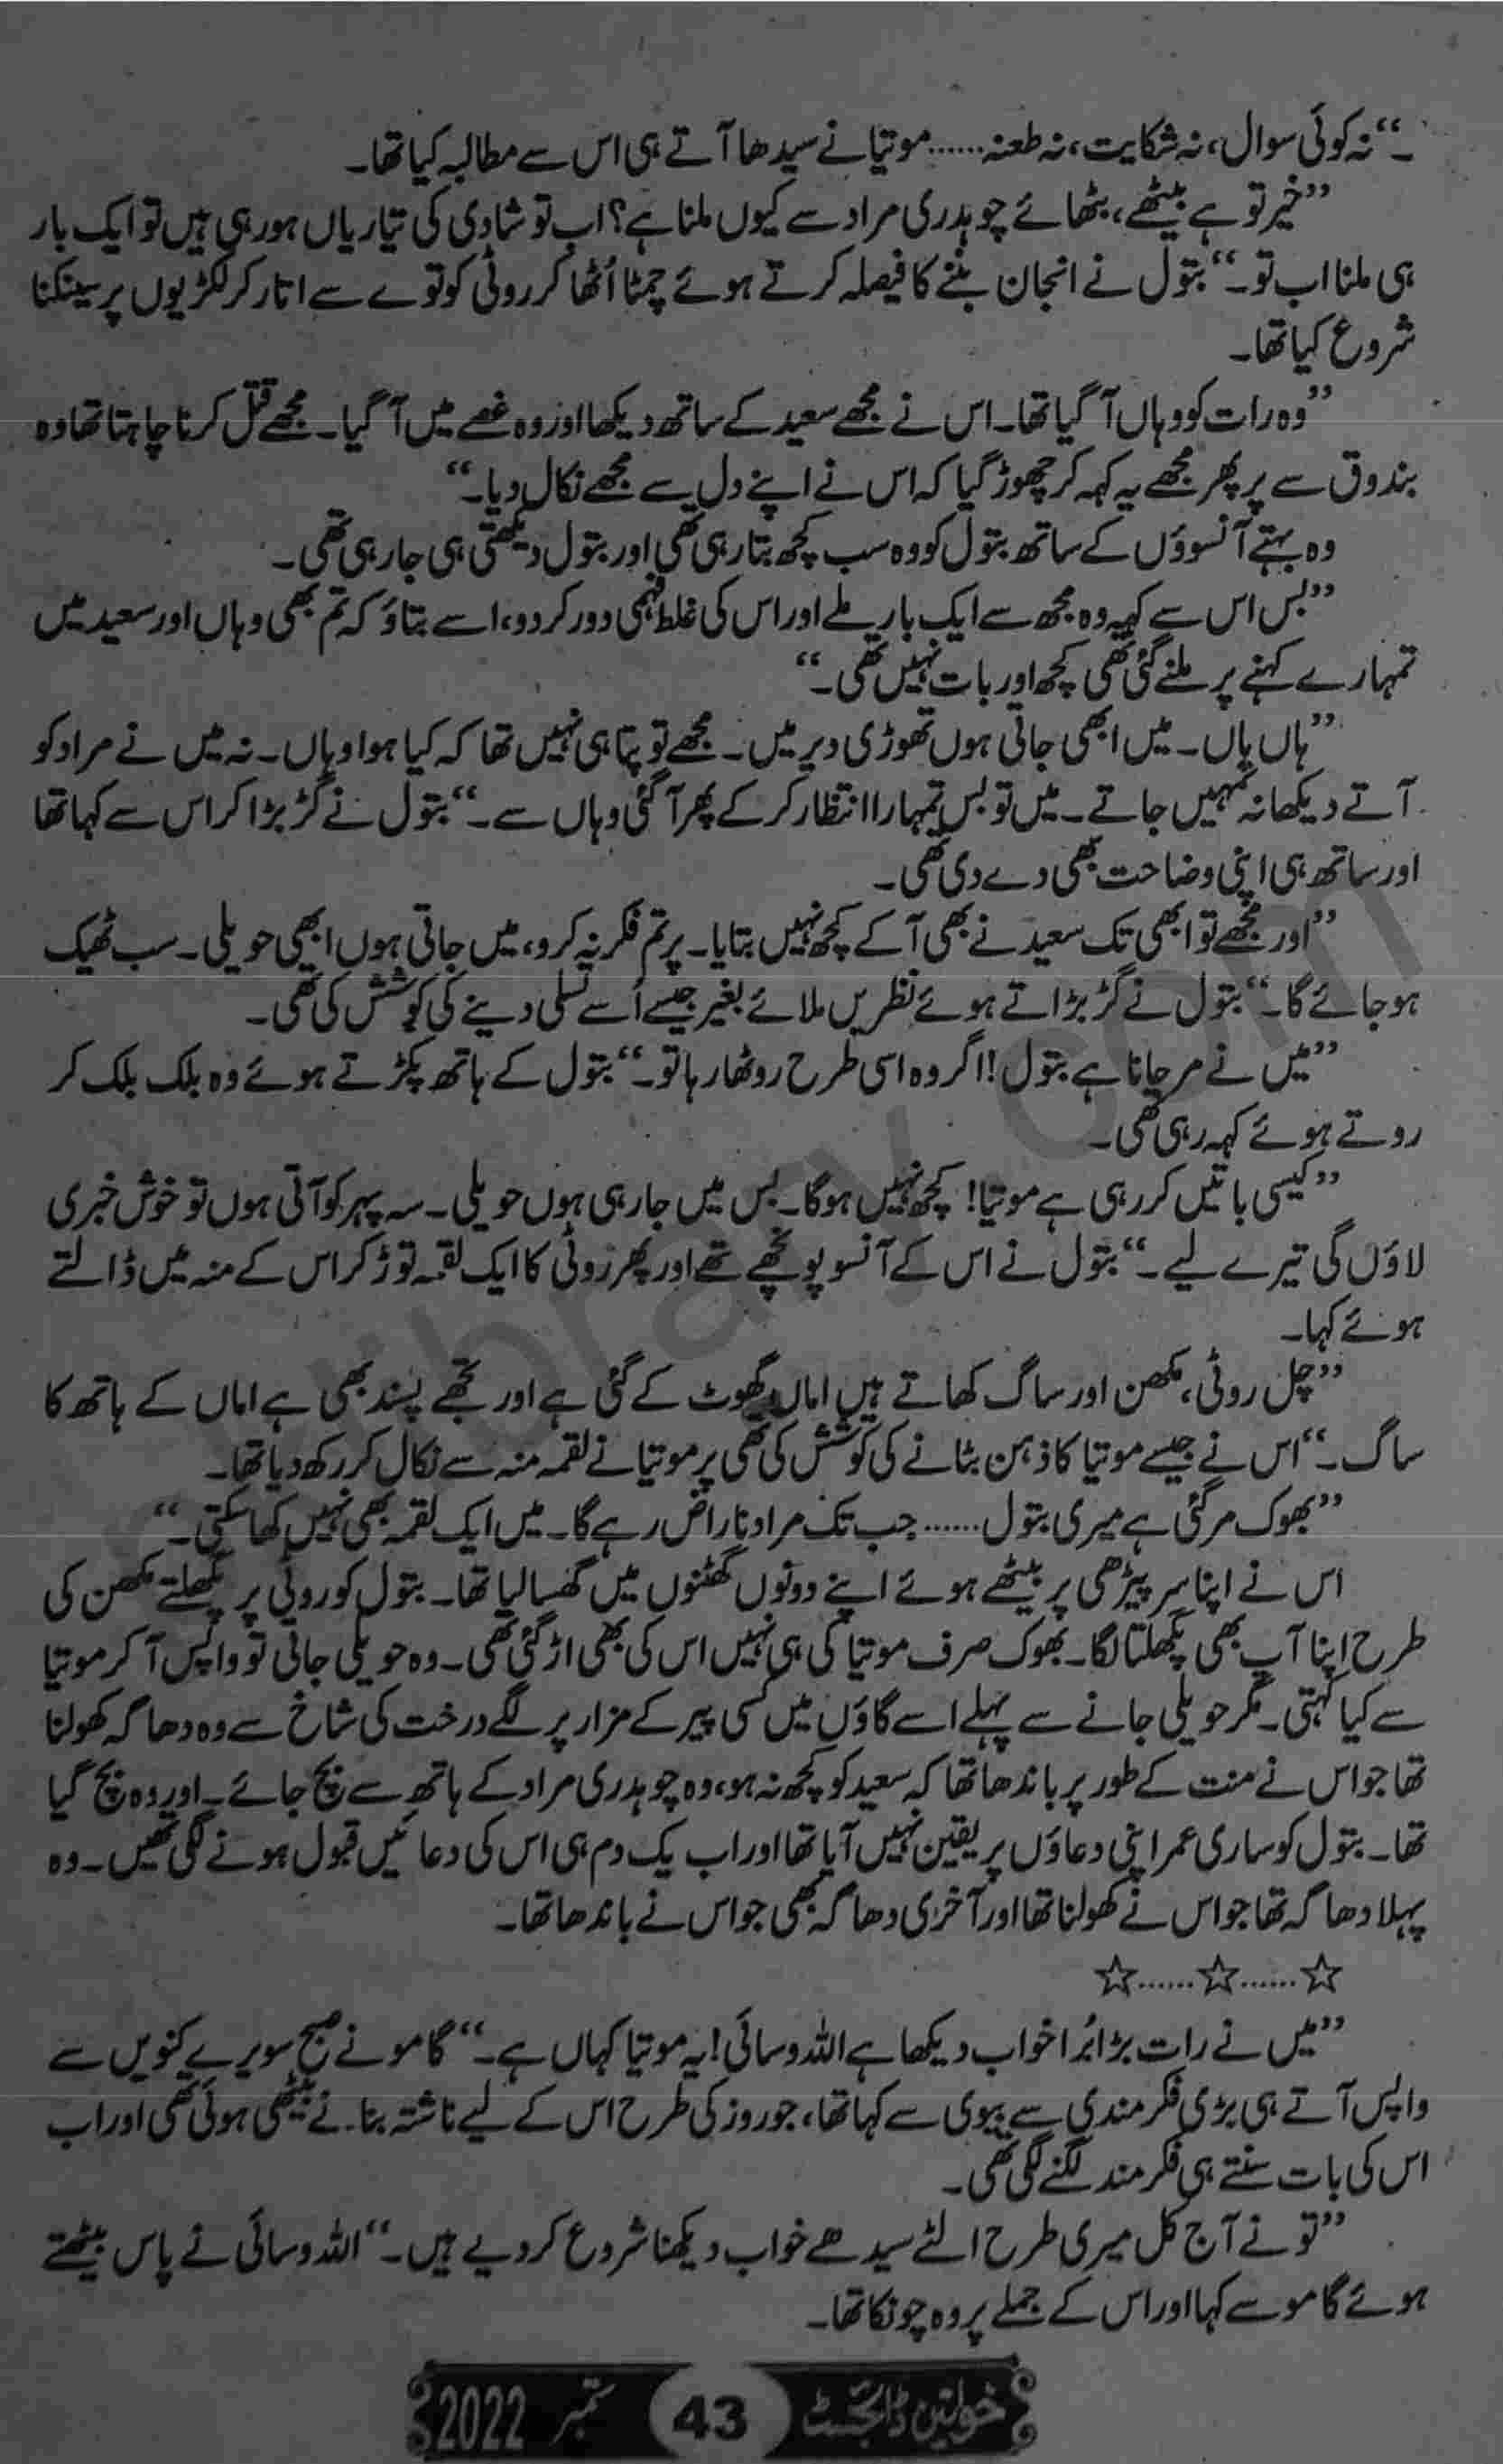 ۔“ نہ کوئی سوال، نہ شکایت، نہ طعنہ...... موتیا نے سیدھا آتے ہی اس سے مطالبہ کیا تھا۔
”خیر تو ہے بیٹھے، بٹھائے چوہدری مراد سے کیوں ملنا ہے؟ اب تو شادی کی تیاریاں ہورہی ہیں تو ایک بار
ہی ملنا اب تو۔“ بتول نے انجان بننے کا فیصلہ کرتے ہوئے چمٹا اُٹھا کر روٹی کو توے سے اتار کر لکڑیوں پر سینکنا
شروع کیا تھا۔
”وہ رات کو وہاں آگیا تھا۔ اس نے مجھے سعید کے ساتھ دیکھا اور وہ غصے میں آگیا۔ مجھے قتل کرنا چاہتا تھا وہ
بندوق سے پر پھر مجھے یہ کہہ کر چھوڑ گیا کہ اس نے اپنے دل سے مجھے نکال دیا۔“
وہ بہتے آنسوؤں کے ساتھ بتول کو وہ سب کچھ بتا رہی تھی اور بتول دیکھتی ہی جا رہی تھی۔
”بس اس سے کہہ وہ مجھ سے ایک بار ملے اور اس کی غلط فہمی دور کر دو، اسے بتاؤ کہ تم بھی وہاں اور سعید میں
تمہارے کہنے پر ملنے گئی تھی کچھ اور بات نہیں تھی۔“
”ہاں ہاں۔ میں ابھی جاتی ہوں تھوڑی دیر میں۔ مجھے تو پتا ہی نہیں تھا کہ کیا ہوا وہاں۔ نہ میں نے مراد کو
آتے دیکھا نہ تمہیں جاتے۔ میں تو بس تمہارا انتظار کر کے پھر آگئی وہاں سے۔“ بتول نے گڑبڑا کر اس سے کہا تھا
اور ساتھ ہی اپنی وضاحت بھی دے دی تھی۔
”اور مجھے تو ابھی تک سعید نے بھی آکے کچھ نہیں بتایا۔ پر تم فکر نہ کرو، میں جاتی ہوں ابھی حویلی۔ سب ٹھیک
ہو جائے گا۔“ بتول نے گڑبڑاتے ہوئے نظریں ملائے بغیر جیسے اُسے تسلی دینے کی کوشش کی تھی۔
”میں نے مر جانا ہے بتول! اگر وہ اسی طرح روٹھا رہا تو۔“ بتول کے ہاتھ پکڑتے ہوئے وہ بلک بلک کر
روتے ہوئے کہہ رہی تھی۔
”کیسی باتیں کر رہی ہے موتیا! کچھ نہیں ہوگا۔ بس میں جا رہی ہوں حویلی۔ سہ پہر کو آتی ہوں تو خوش خبری
لاؤں گی تیرے لیے۔“ بتول نے اس کے آنسو پونچھے تھے اور پھر روٹی کا ایک لقمہ توڑ کر اس کے منہ میں ڈالتے
ہوئے کہا۔
”چل روٹی، مکھن اور ساگ کھاتے ہیں اماں گھوٹ کے گئی ہے اور تجھے پسند بھی ہے اماں کے ہاتھ کا
ساگ۔“ اس نے جیسے موتیا کا ذہن بٹانے کی کوشش کی تھی پر موتیا نے لقمہ منہ سے نکال کر رکھ دیا تھا۔
”بھوک مر گئی ہے میری بتول...... جب تک مراد ناراض رہے گا۔ میں ایک لقمہ بھی نہیں کھا سکتی۔“
اس نے اپنا سر پیڑھی پر بیٹھے ہوئے اپنے دونوں گھٹنوں میں گھسا لیا تھا۔ بتول کو روٹی پر پگھلتے مکھن کی
طرح اپنا آپ بھی پگھلتا لگا۔ بھوک صرف موتیا کی ہی نہیں اس کی بھی اڑ گئی تھی۔ وہ حویلی جاتی تو واپس آکر موتیا
سے کیا کہتی۔ مگر حویلی جانے سے پہلے اسے گاؤں میں کسی پیر کے مزار پر لگے درخت کی شاخ سے وہ دھاگہ کھولنا
تھا جو اس نے منت کے طور پر باندھا تھا کہ سعید کو کچھ نہ ہو، وہ چوہدری مراد کے ہاتھ سے بچ جائے۔ اور وہ بچ گیا
تھا۔ بتول کو ساری عمر اپنی دعاؤں پر یقین نہیں آیا تھا اور اب یک دم ہی اس کی دعائیں قبول ہونے لگی تھیں۔ وہ
پہلا دھاگہ تھا جو اس نے کھولنا تھا اور آخری دھاگہ بھی جو اس نے باندھا تھا۔
☆......☆......☆
”میں نے رات بڑا بُرا خواب دیکھا ہے اللہ وسائی! یہ موتیا کہاں ہے۔“ گامو نے صبح سویرے کنویں سے
واپس آتے ہی بڑی فکر مندی سے بیوی سے کہا تھا، جو روز کی طرح اس کے لیے ناشتہ بنانے بیٹھی ہوئی تھی اور اب
اس کی بات سنتے ہی فکر مند لگنے لگی تھی۔
”تو نے آج کل میری طرح الٹے سیدھے خواب دیکھنا شروع کر دیے ہیں۔“ اللہ وسائی نے پاس بیٹھتے
ہوئے گامو سے کہا اور اس کے جملے پر وہ چونکا تھا۔
خواتین ڈائجسٹ 43 ستمبر 2022